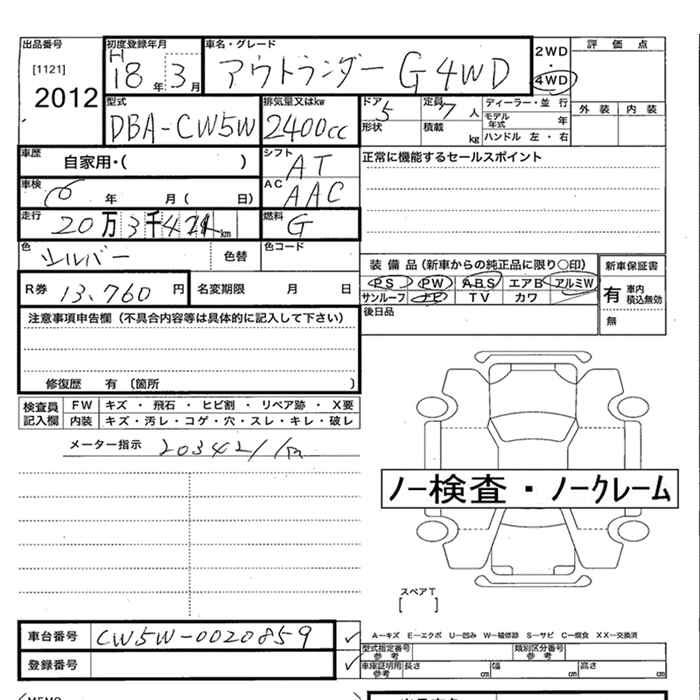 出品番号 初度登録年月 車名・グレード 2WD 評価点
[1121] H18年 3月 アウトランダー G4WD 4WD
2012 外装 内装
型式 排気量又はkw ドア 定員 ディーラー・並行
DBA-CW5W 2400cc 5 7人 モデル年式 年
形状 積載 kg ハンドル 左・右
車歴 自家用・( ) シフト AT 正常に機能するセールスポイント
車検 年 月( 日) AC AAC
走行 20万3千421km 燃料 G
色 シルバー 色替 色コード
装備品(新車からの純正品に限り○印) 新車保証書
R券 13,760円 名変期限 月 日 PS PW ABS エアB アルミW 有 車内積込無効
サンルーフ ナビ TV カワ 無
注意事項申告欄(不具合内容等は具体的に記入して下さい) 後日品
修復歴 有 〔箇所 〕
検査員記入欄 FW キズ・飛石・ヒビ割・リペア跡・X要
内装 キズ・汚レ・コゲ・穴・スレ・キレ・破レ
メーター指示 203421km
ノー検査・ノークレーム
スペアT
[ ]
車台番号 CW5W-0020859 ✓ A-キズ E-エクボ U-凹み W-補修跡 S-サビ C-腐食 XX-交換済
型式指定番号 参考 類別区分番号 参考
登録番号 ✓ 車庫証明用 参考 長さ cm 幅 cm 高さ cm
MEMO